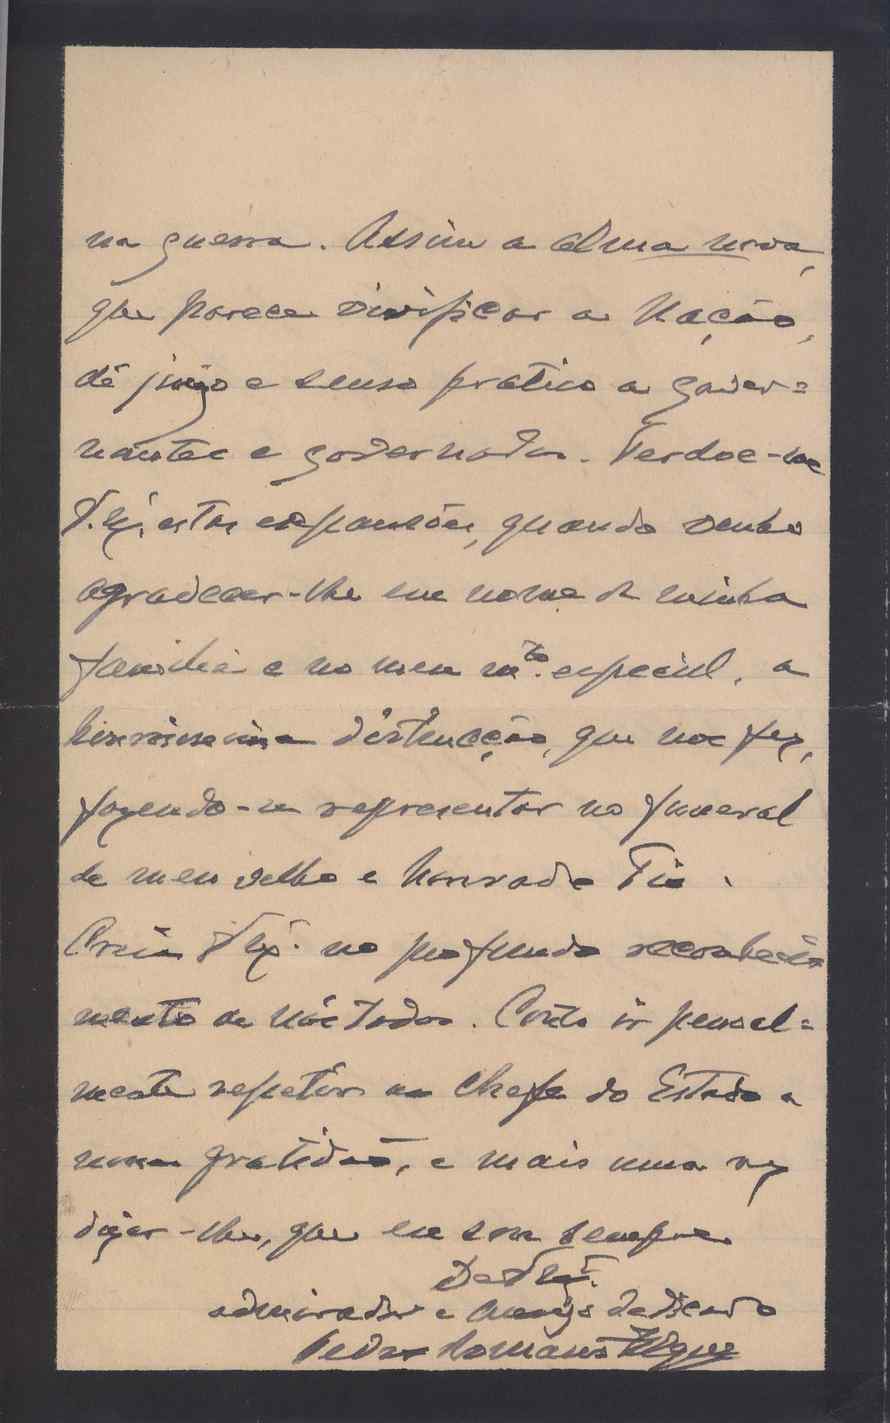 na guerra. Assim a alma nova,
que parece vivificar a Nação,
dê juizo e senso pratico a gover=
nantes e governados. Perdoe-me
V. Exª. estas expansões, quando venho
agradecer-lhe em nome de minha
familia e no meu mto. especial, a
honrosissima distincção, que nos fez,
fazendo-se representar no funeral
de meu velho e honrado Tio.
Creia V. Exª. no profundo reconheci
mento de nós todos. Conto ir pessoal=
mente repetir ao Chefe do Estado a
nossa gratidão, e mais uma vez
dizer-lhe, que eu sou sempre
De V. Exª.
admirador e amigo dedicado
Pedro Romano